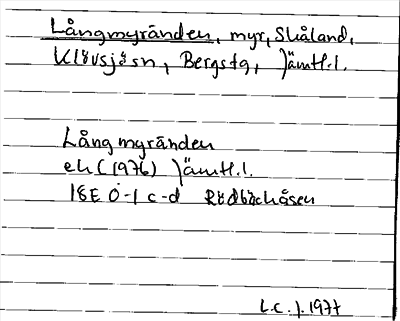 Långmyränden, myr, Skåland,
Klövsjösn, Bergstg, Jämtl.l.
Långmyränden
ek (1976) Jämtl.l.
18E 0-1 c-d Rödbäckåsen
L.C.J. 1977